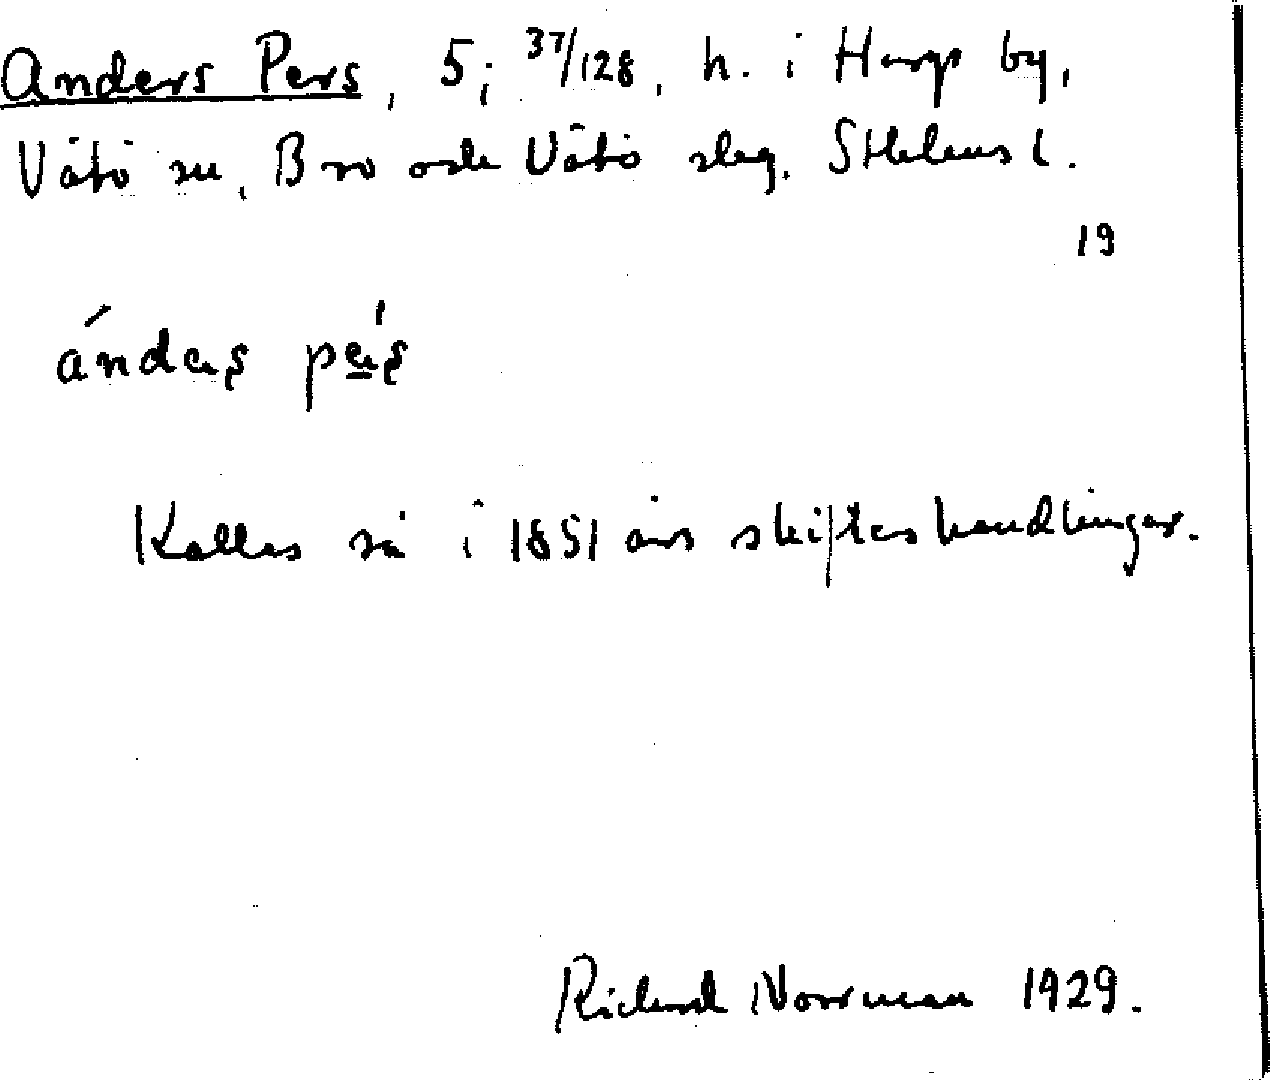 Anders Pers, 5; 37/128, h. i Harg by,
Vätö sn, Bro och Vätö skeg. Sthlms l.
19
ándeṣ pe̲ṣ
Kallas så i 1851 års skifteshandlingar.
Richard Norrman 1929.